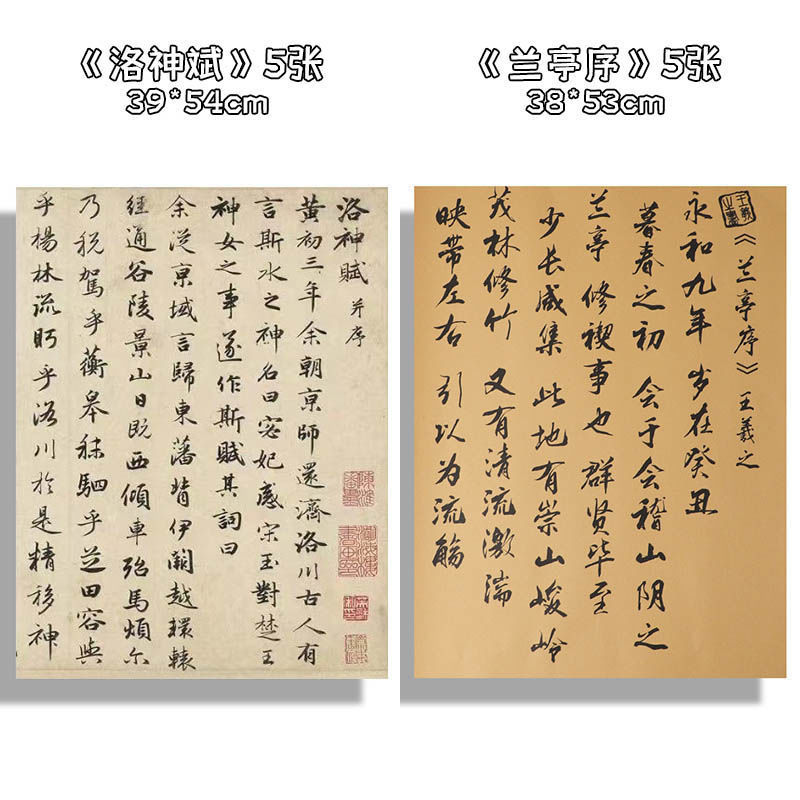 《洛神斌》5张
39*54cm
洛神賦 并序
黄初三年余朝京師還濟洛川古人有
言斯水之神名曰宓妃感宋玉對楚王
神女之事遂作斯賦其詞曰
余從京域言歸東藩背伊闕越轘轅
經通谷陵景山日既西傾車殆馬煩尔
乃税駕乎蘅皋秣駟乎芝田容與
乎楊林流眄乎洛川於是精移神
《兰亭序》5张
38*53cm
《兰亭序》王羲之
永和九年 岁在癸丑
暮春之初 会于会稽山阴之
兰亭 修禊事也 群贤毕至
少长咸集 此地有崇山峻岭
茂林修竹 又有清流激湍
映带左右 引以为流觞